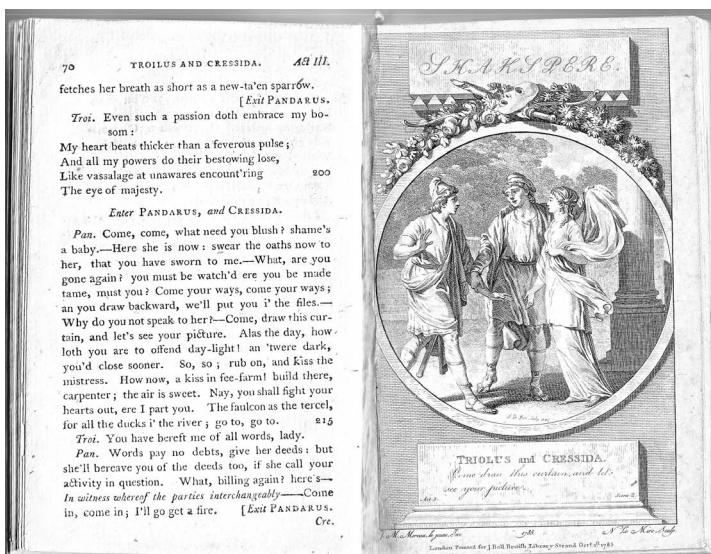 70 TROILUS AND CRESSIDA. Act III.
fetches her breath as short as a new-ta'en sparrow.
[Exit PANDARUS.
Troi. Even such a passion doth embrace my bo-
som:
My heart beats thicker than a feverous pulse;
And all my powers do their bestowing lose,
Like vassalage at unawares encount'ring 200
The eye of majesty.
Enter PANDARUS, and CRESSIDA.
Pan. Come, come, what need you blush? shame's
a baby.—Here she is now: swear the oaths now to
her, that you have sworn to me.—What, are you
gone again? you must be watch'd ere you be made
tame, must you? Come your ways, come your ways;
an you draw backward, we'll put you i' the files.—
Why do you not speak to her?—Come, draw this cur-
tain, and let's see your picture. Alas the day, how
loth you are to offend day-light! an 'twere dark,
you'd close sooner. So, so; rub on, and kiss the
mistress. How now, a kiss in fee-farm! build there,
carpenter; the air is sweet. Nay, you shall fight your
hearts out, ere I part you. The faulcon as the tercel,
for all the ducks i' the river; go to, go to. 215
Troi. You have bereft me of all words, lady.
Pan. Words pay no debts, give her deeds: but
she'll bereave you of the deeds too, if she call your
activity in question. What, billing again? here's—
In witness whereof the parties interchangeably——Come
in, come in; I'll go get a fire. [Exit PANDARUS.
Cre.
SHAKSPERE.
TROILUS and CRESSIDA.
Come draw this curtain, and let's
see your picture.
Act 3. Scene 2.
J. M. Moreau le jeune Inv. 1785. N. Le Mire Sculp.
London Printed for J. Bell British Library Strand Octr. 1785